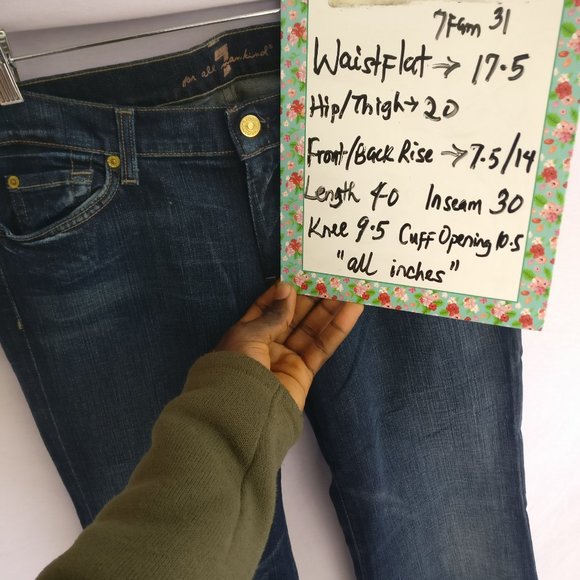 7Fam 31
WaistFlat → 17.5
Hip/Thigh → 20
Front/Back Rise → 7.5/14
Length 40 Inseam 30
Knee 9.5 Cuff Opening 10.5
"all inches"
for all mankind®